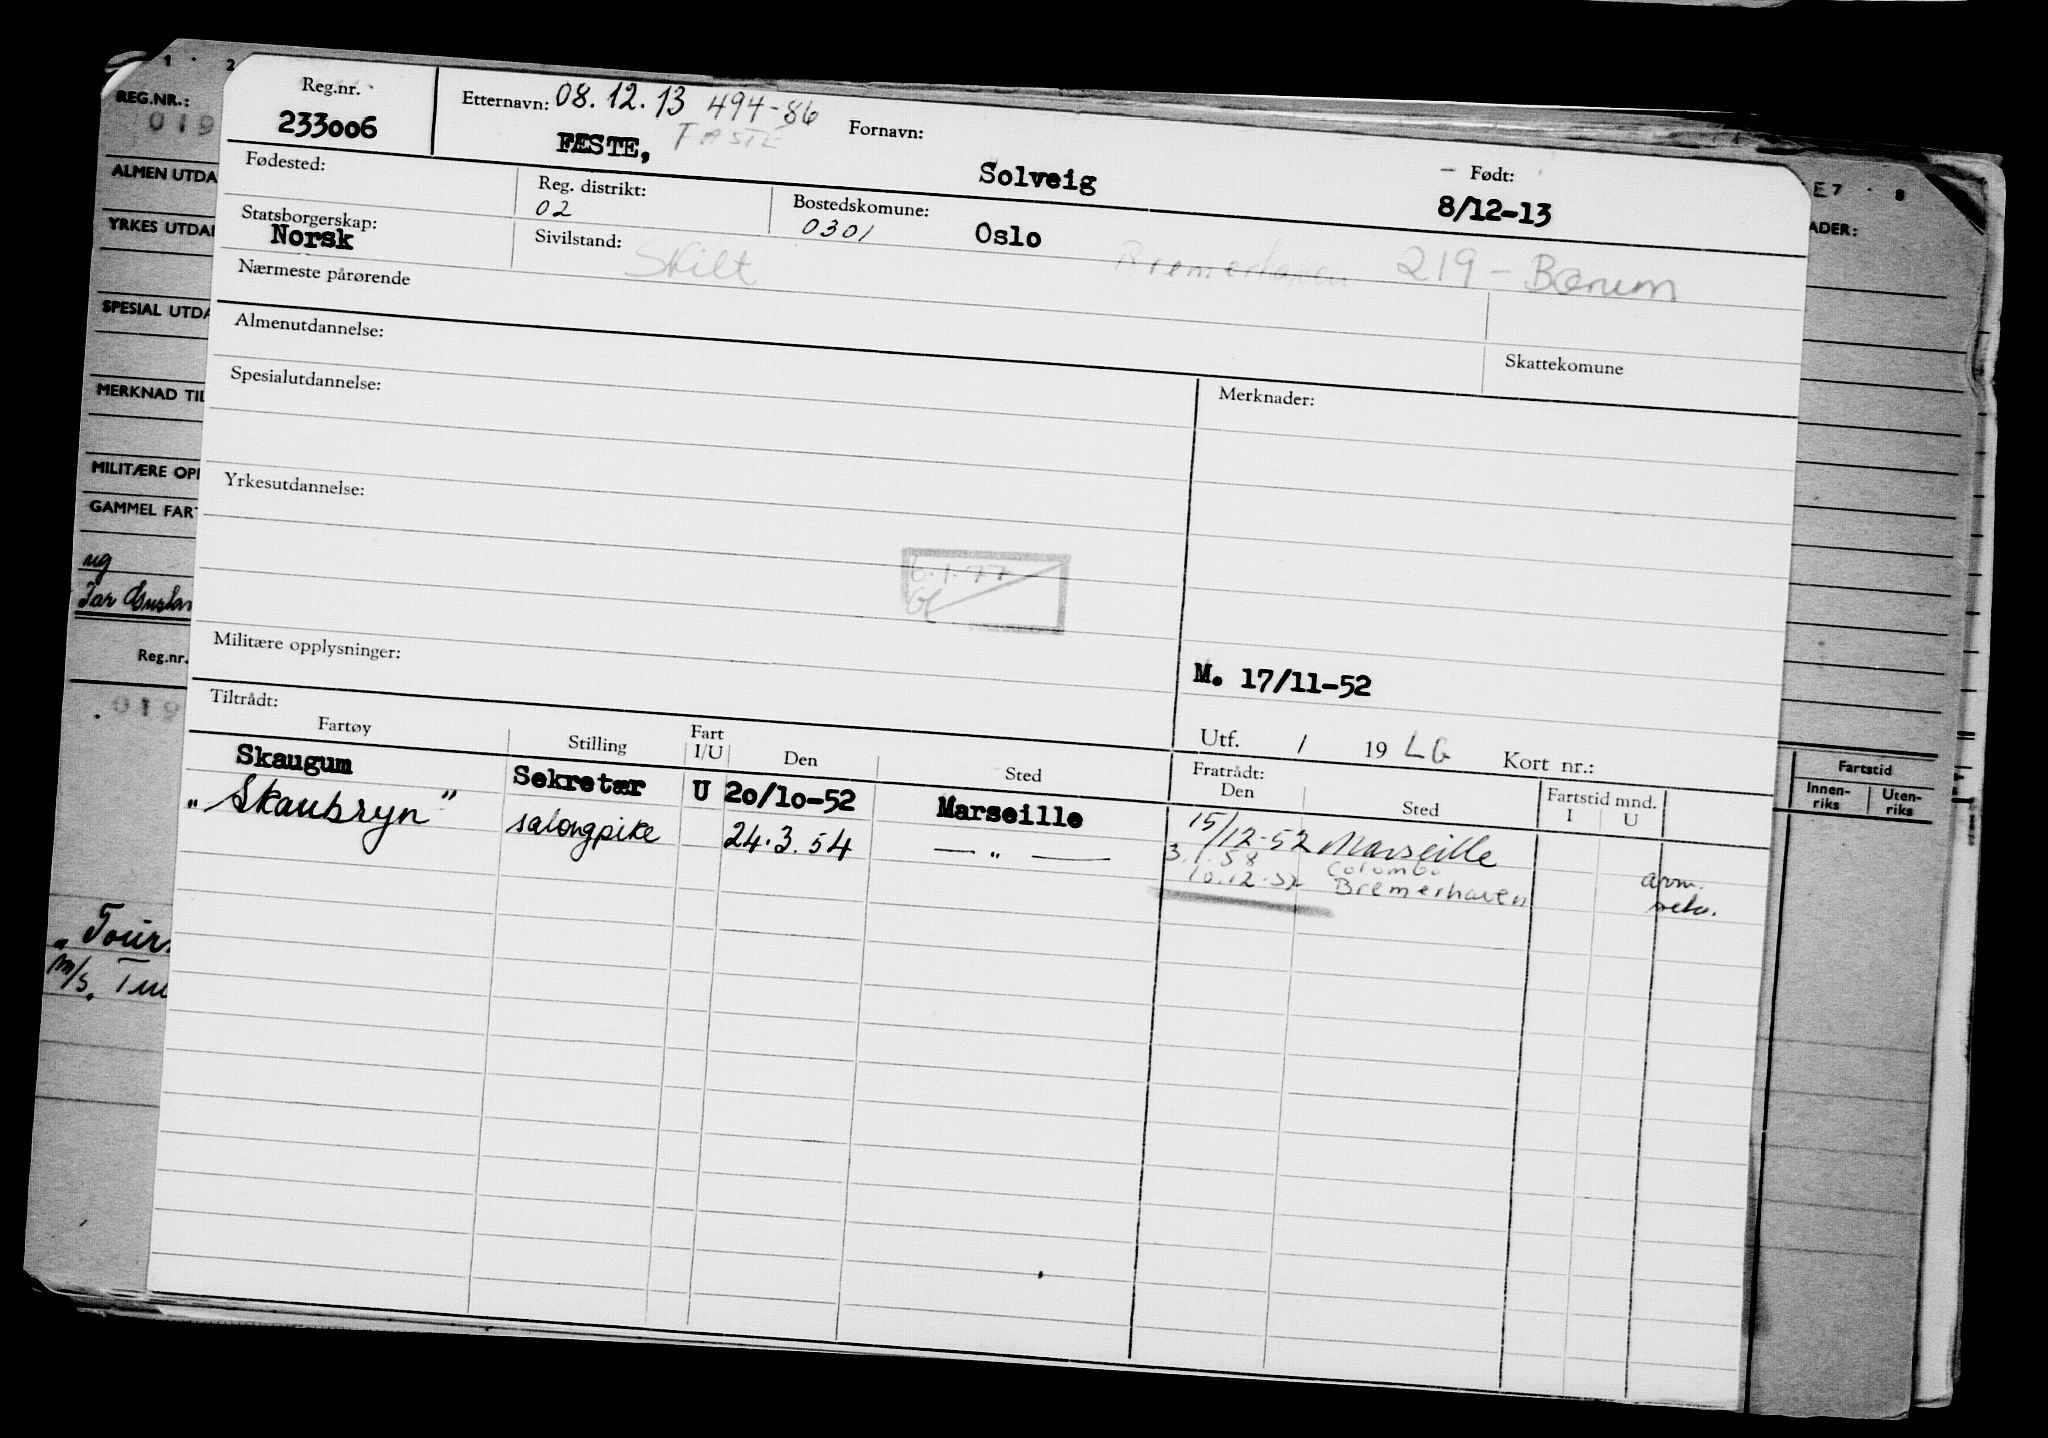 1 · 2
REG.NR.:
019
Reg.nr.
233006
Etternavn: 08.12.13 494-86
FÆSTE, FASTE
Fornavn:
Solveig
Født:
8/12-13
E 7 · 8
ADER:
ALMEN UTDA
Fødested:
Reg. distrikt:
02
Bostedskomune:
0301 Oslo
YRKES UTDA
Statsborgerskap:
Norsk
Sivilstand: Skilt
Bremerhaven 219 - Bærum
Nærmeste pårørende
SPESIAL UTDA
Almenutdannelse:
Skattekomune
Spesialutdannelse:
Merknader:
MERKNAD TIL
MILITÆRE OPP
Yrkesutdannelse:
GAMMEL FART
ug
6.1.77
Militære opplysninger:
Reg.nr.
M. 17/11-52
019
Tiltrådt:
Utf. / 19 LG Kort nr.:
Fartøy Stilling Fart I/U Den Sted
Fratrådt: Den Sted Fartstid mnd. I U
Fartstid
Innen-riks Uten-riks
Skaugum Sekretær U 20/10-52 Marseille 15/12-52 Marseille
"Skaubryn" salongpike 24.3.54 — " — 3.1.58 Colombo avm.
10.12.52 Bremerhaven
"Tour
m/s.